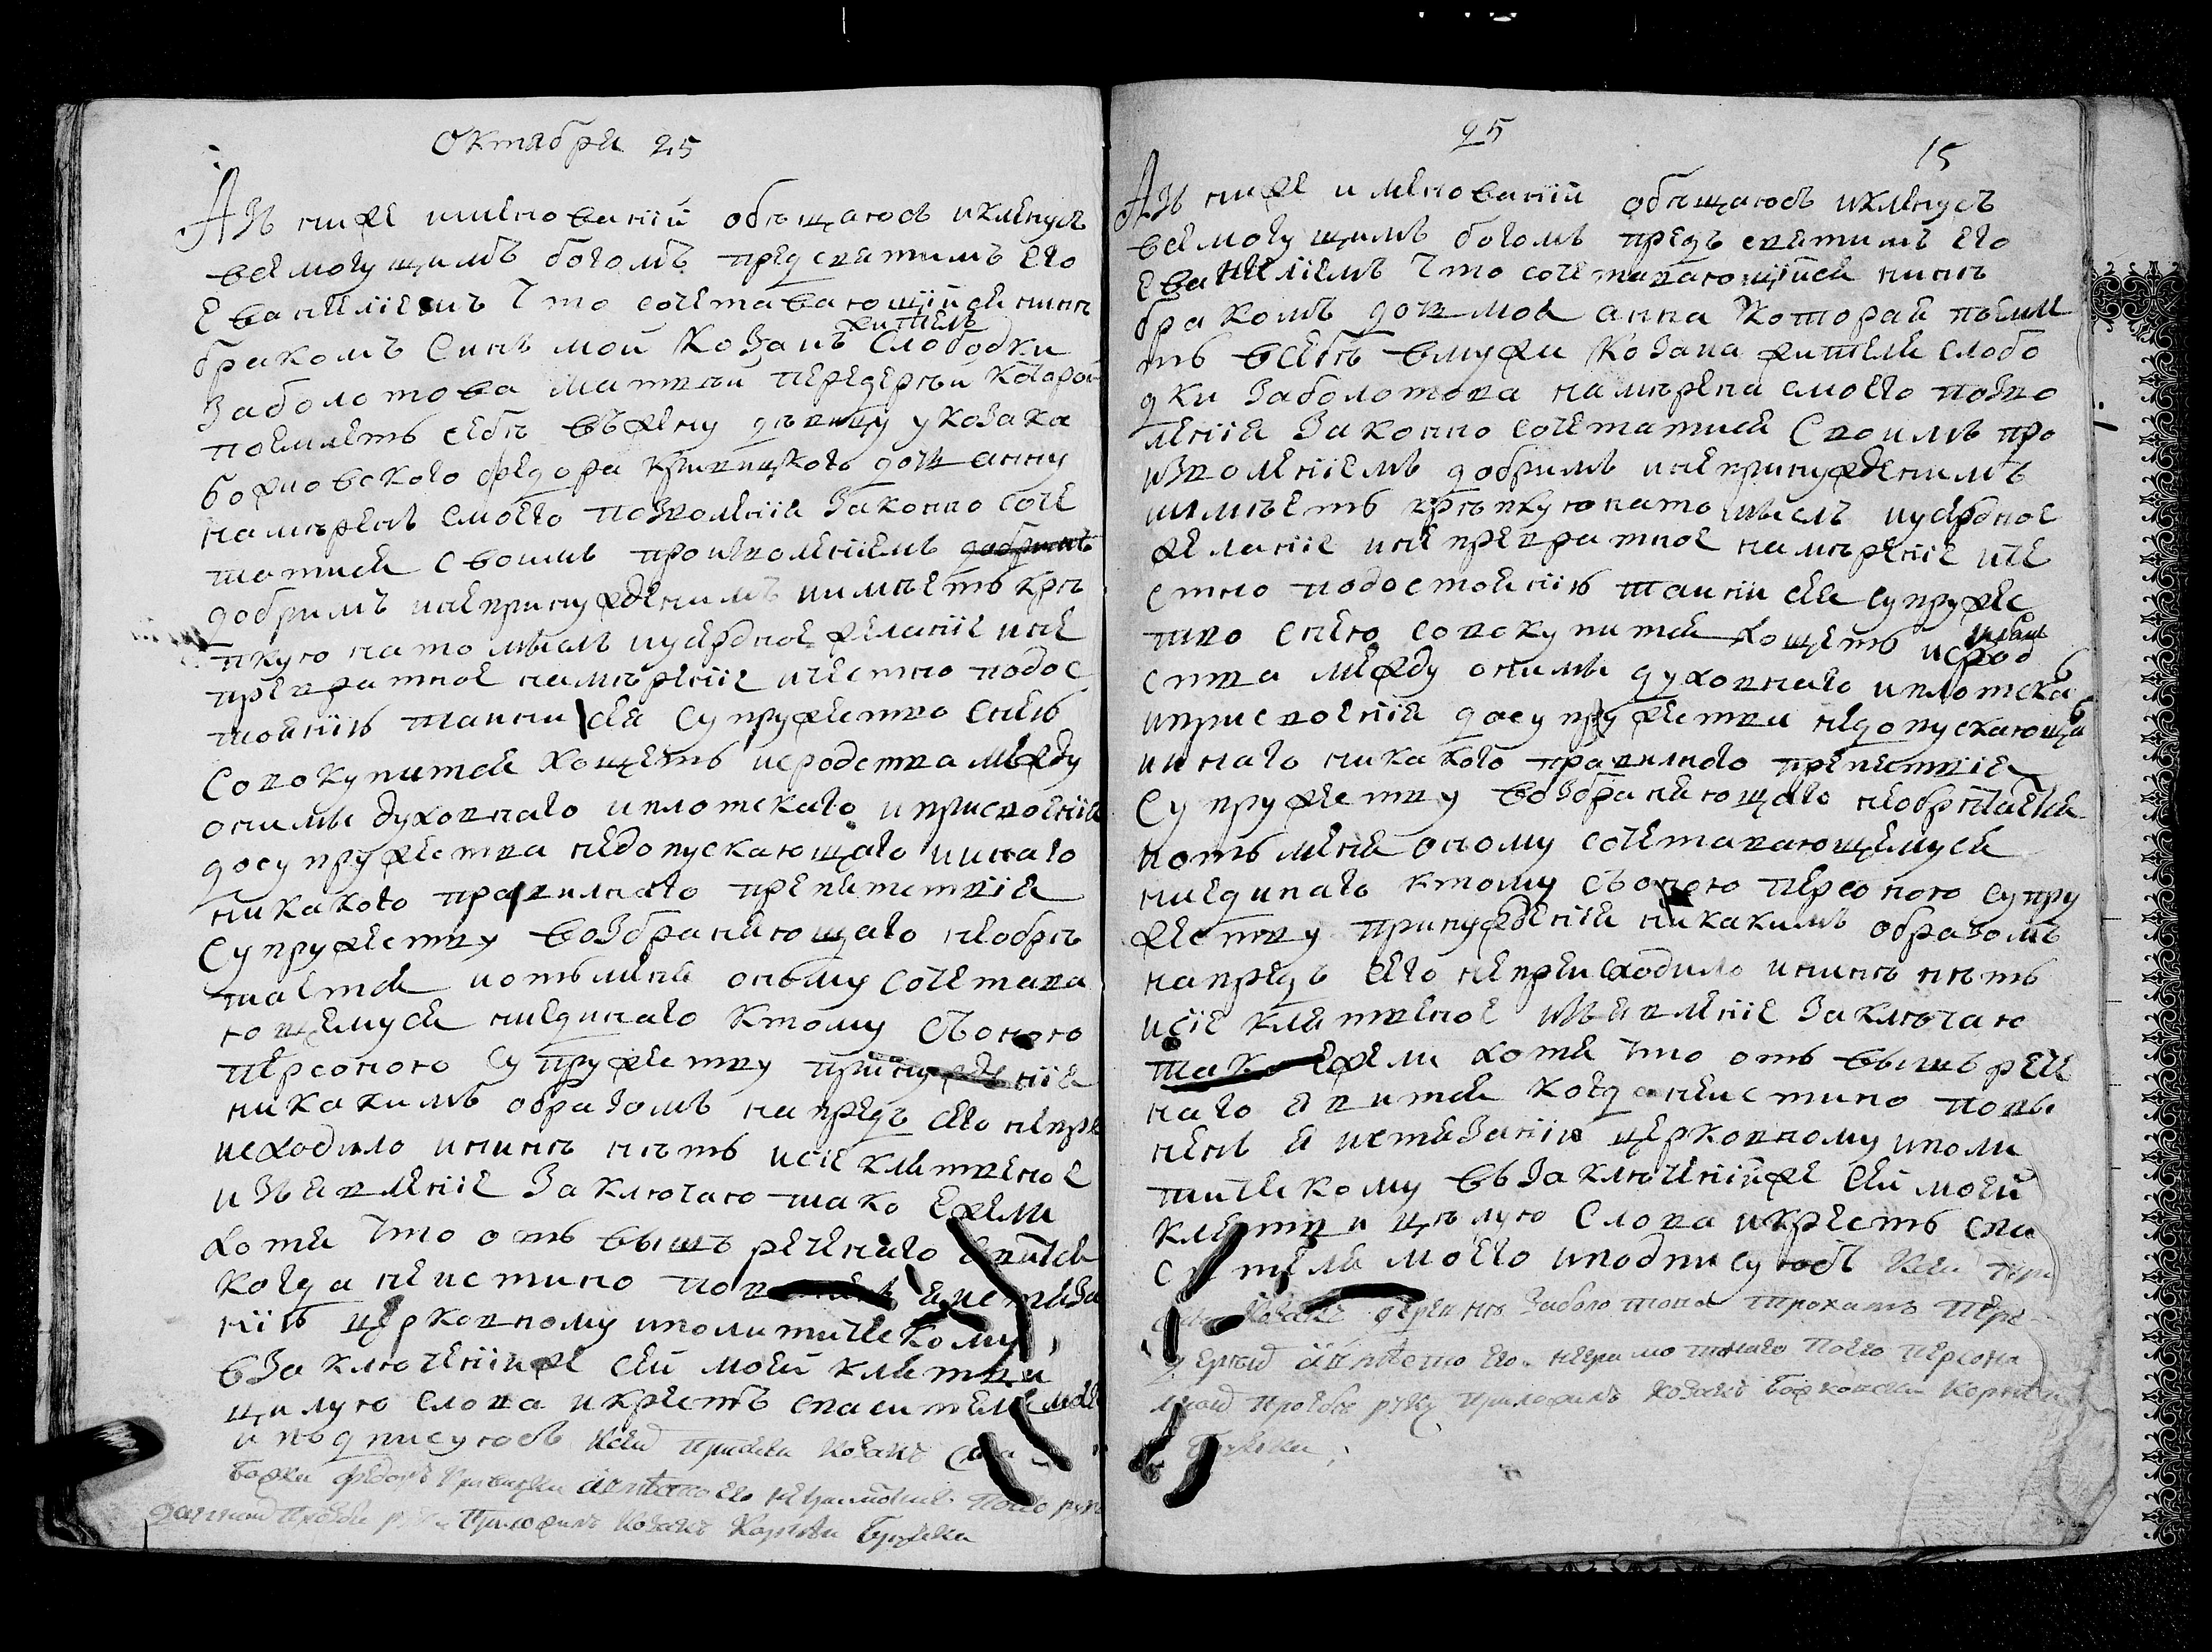 Октября 25
Азъ нижеименованній обѣщаюсь и кленусь
всемогущимъ богомъ пред святимъ его
Евангеліемъ что сочетавающійся нинѣ
житель
бракомъ Синъ мой Козакъ Слободки
Заболотова Матвѣй Передерѣй которой
поемлетъ себѣ въ жену дѣвицу у козака
Федора дочь Анну
намѣренъ с моего позволенія законно соче
татися своимъ произволеніемъ добримъ
добримъ и непринужденимъ и имѣетъ крѣ
пкую на то мысль и усердное желаніе и не
превратное намѣреніе и честно по дос
тоянію тайни сея супружество с нею
совокупится хощетъ и сродства между
оними духовнаго и плотскаго и присвоенія
до супружества недопускающаго и инаго
никакого правилнаго препятствія
супружеству возбраняющаго необрѣ
тается и отъ мене оному сочетава
ющемуся ниединаго к тому съ оною
персоною супружеству принужденія
никакимъ образомъ напредъ сего непро
исходило и нинѣ нѣтъ и сіе клятвеное
изъявленіе заключаю тако ежели
хотя что отъ вышъ реченнаго явится
когда неистино повиненъ я истяза
нію церковному и политическому
в заключеніи же сей моей клятви
цилую слова и крестъ спасителя моего
и подписуюсь к сей присяги козакъ
Федоръ а вмѣсто его неграмотнаго по его
прозбѣ руку приложилъ козакъ Корнѣй
25
15
Азъ нижеименованній обѣщаюсь и кленусь
всемогущимъ богомъ предъ святимъ его
Евангеліемъ что сочетавающійся нинѣ
бракомъ дочъ моя Анна которая поемле
тъ в себѣ в мужи козака жителя слобо
дки Заболотова намѣрена с моего позво
ленія законно сочетатися своимъ про
изволеніемъ добримъ и непринужденимъ
и имѣетъ крѣпкую на то мысль и усердное
желаніе и непревратное намѣреніе и че
стно по достоянію тайни сея супружес
тво с нею совокупится хощетъ и срод
ства между оними духовнаго и плотскаго
и присвоенія до супружества недопускающаго
и инаго никакого правилного препятствія
супружеству возбраняющаго необрѣтается
и отъ мене оному сочетавающемуся
ниединаго к тому съ оною персоною супру
жеству принужденія никакимъ образомъ
напредъ сего непроисходило и нинѣ нѣтъ
и сіе клятвеное изъявленіе заключаю
тако ежели хотя что отъ вышъ рече
наго явится когда неистино пови
ненъ я истязанію церковному и поли
тическому въ заключеніи же сей моей
клятви цѣлую слова и крестъ спа
сителя моего и подписуюсь к сей при
козакъ деревнѣ Заболотова
дерѣй а вмѣсто его неграмотнаго по его персона
лной прозбѣ руку приложилъ козакъ Корнѣй